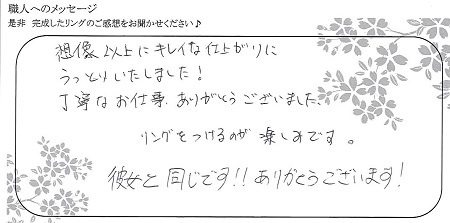 職人へのメッセージ
是非 完成したリングのご感想をお聞かせください♪
想像以上にキレイな仕上がりに
うっとりいたしました!
丁寧なお仕事、ありがとうございました。
リングをつけるのが楽しみです。
彼女と同じです!!ありがとうございます!